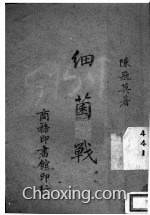 陳飛莫著
細菌戰
商務印書館印行
441
Chaoxing.com